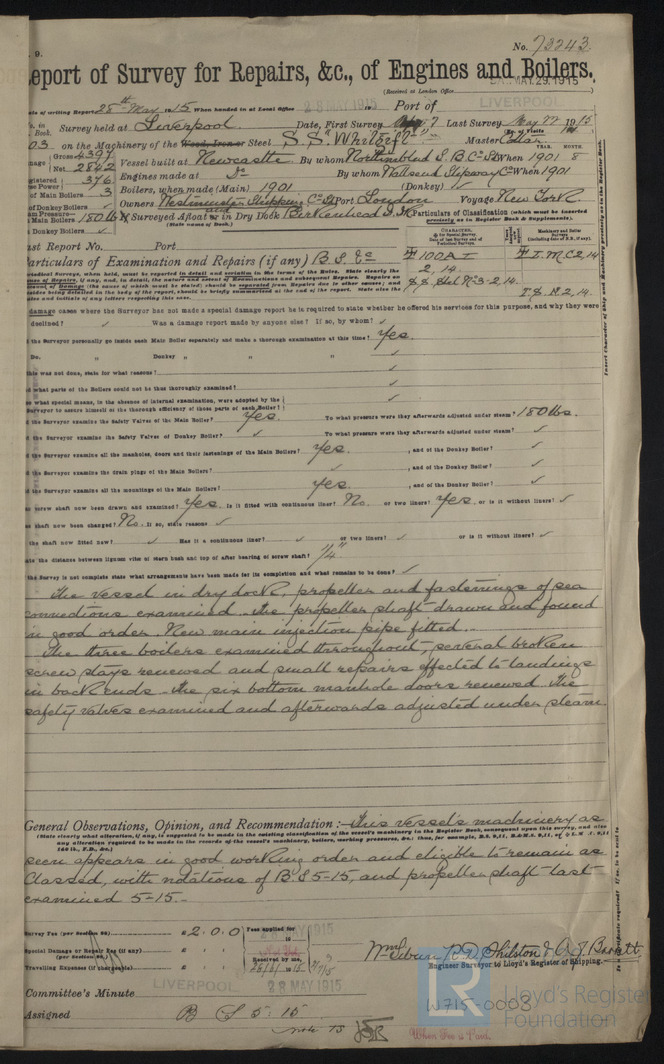 9.
No. 73243.
eport of Survey for Repairs, &c., of Engines and Boilers.
(Received at London Office SAT. MAY. 29. 1915
ate of writing Report 28th May 1915 When handed in at Local Office 28 MAY 1915 Port of LIVERPOOL
in Book. Survey held at Liverpool. Date, First Survey May 7 Last Survey May 27 1915
03 on the Machinery of the Wood, Iron or Steel S.S. "Whitgift" Master
Gross 4397
Net 2842 Vessel built at Newcastle By whom Northumbld S. B. Co Ld When 1901 8
376 Engines made at Do By whom Wallsend Slipway Co When 1901
of Main Boilers 3 Boilers, when made (Main) 1901 (Donkey) ✓
of Donkey Boilers ✓ Owners Westminster Shipping Co Ld Port London Voyage New York
Main Boilers 180 lbs If Surveyed Afloat or in Dry Dock Birkenhead
(State name of Dock.)
Particulars of Classification (which must be inserted precisely as in Register Book & Supplements).
Donkey Boilers ✓
ast Report No. Port
articulars of Examination and Repairs (if any) B S &c
100 A 1
2,14.
L.M.C. 2,14
T.S. 2,14.
damage cases where the Surveyor has not made a special damage report he is required to state whether he offered his services for this purpose, and why they were
declined? ✓ Was a damage report made by anyone else? If so, by whom? ✓
the Surveyor personally go inside each Main Boiler separately and make a thorough examination at this time? Yes.
Do. „ Donkey „ „ „ ✓
this was not done, state for what reasons? ✓
what parts of the Boilers could not be thoroughly examined? ✓
what special means, in the absence of internal examination, were adopted by the
Surveyor to assure himself of the thorough efficiency of those parts of each Boiler? ✓
the Surveyor examine the Safety Valves of the Main Boiler? Yes. To what pressure were they afterwards adjusted under steam? 180 lbs.
the Surveyor examine the Safety Valves of Donkey Boiler? ✓ To what pressure were they afterwards adjusted under steam? ✓
the Surveyor examine all the manholes, doors and their fastenings of the Main Boilers? Yes. , and of the Donkey Boiler? ✓
the Surveyor examine the drain plugs of the Main Boilers? ✓ , and of the Donkey Boiler? ✓
the Surveyor examine all the mountings of the Main Boilers? Yes. , and of the Donkey Boiler? ✓
screw shaft now been drawn and examined? Yes. Is it fitted with continuous liner? No. or two liners? Yes. or is it without liners? ✓
shaft now been changed? No. If so, state reasons ✓
the shaft now fitted new? ✓ Has it a continuous liner? ✓ or two liners? ✓ or is it without liners? ✓
ate the distance between lignum vitæ of stern bush and top of after bearing of screw shaft? 1/4"
the Survey is not complete state what arrangements have been made for its completion and what remains to be done? ✓
The vessel in dry dock, propeller and fastenings of sea
connections examined. The propeller shaft drawn and found
in good order. New main injection pipe fitted.
The three boilers examined throughout, several broken
screw stays renewed and small repairs effected to landings
in back ends. The six bottom manhole doors renewed. The
safety valves examined and afterwards adjusted under steam.
General Observations, Opinion, and Recommendation:— This vessel's machinery as
(State clearly what alteration, if any, is suggested to be made in the existing classification of the vessel's machinery in the Register Book, consequent upon this survey, and also
any alteration required to be made in the records of the vessel's machinery, boilers, working pressures, &c.
seen appears in good working order and eligible to remain as
classed, with notations of B S 5-15, and propeller shaft last
examined 5-15.
Survey Fee £ 2 . 0 . 0 Fees applied for
Special Damage or Repair Fee (if any) £
Travelling Expenses (if chargeable) £ Received by me,
28 MAY 1915
R. D. Shilston & A. J. Barrett
Engineer Surveyor to Lloyd's Register of Shipping.
Committee's Minute LIVERPOOL 28 MAY 1915
Assigned B S 5.15.
note TS
When Fee is Paid.
W715-0003
LR
Lloyd's Register
Foundation